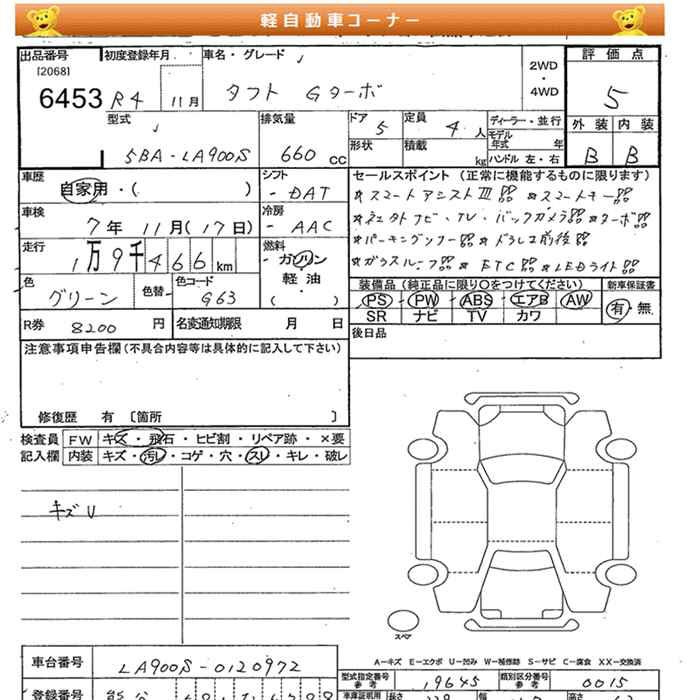 軽自動車コーナー
出品番号 初度登録年月 車名・グレード 2WD・4WD 評価点
[2068]
6453 R4 11月 タフト Gターボ 5
型式 排気量 ドア 5 定員 4人 ディーラー・並行 外装 内装
5BA-LA900S 660cc 形状 積載 kg モデル年式 年 B B
ハンドル 左・右
車歴 シフト セールスポイント (正常に機能するものに限ります)
自家用・( ) DAT ★スマートアシストⅢ ★スマートキー
車検 冷房 ★コネクトナビ・TV・バックカメラ ★ターボ
7年 11月(17日) AAC
走行 燃料 ★パーキングソナー ★ドラレコ前後
1万9千466km ガソリン ★ガラスルーフ ★ETC ★LEDライト
軽油
色 色替 色コード ( ) 装備品 (純正品に限り○をつけてください) 新車保証書
グリーン G63 PS PW ABS エアB AW 有・無
SR ナビ TV カワ
R券 8200円 名変通知期限 月 日 後日品
注意事項申告欄(不具合内容等は具体的に記入して下さい)
修復歴 有 〔箇所 〕
検査員 FW キズ・飛石・ヒビ割・リペア跡・×要
記入欄 内装 キズ・汚れ・コゲ・穴・スレ・キレ・破レ
キズU
スペア
A-キズ E-エクボ U-凹み W-補修跡 S-サビ C-腐食 XX-交換済
車台番号 LA900S-0120972 型式指定番号 参考 19645 類別区分番号 参考 0015
登録番号 車庫証明用 長さ 幅 高さ